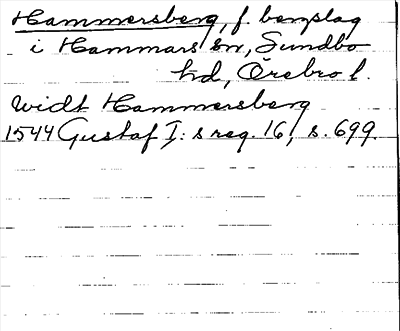 Hammersberg, f. bergslag
i Hammars sn, Sundbo
hd, Örebro l.
widt Hammersberg
1544 Gustaf I:s reg. 16, s. 699.